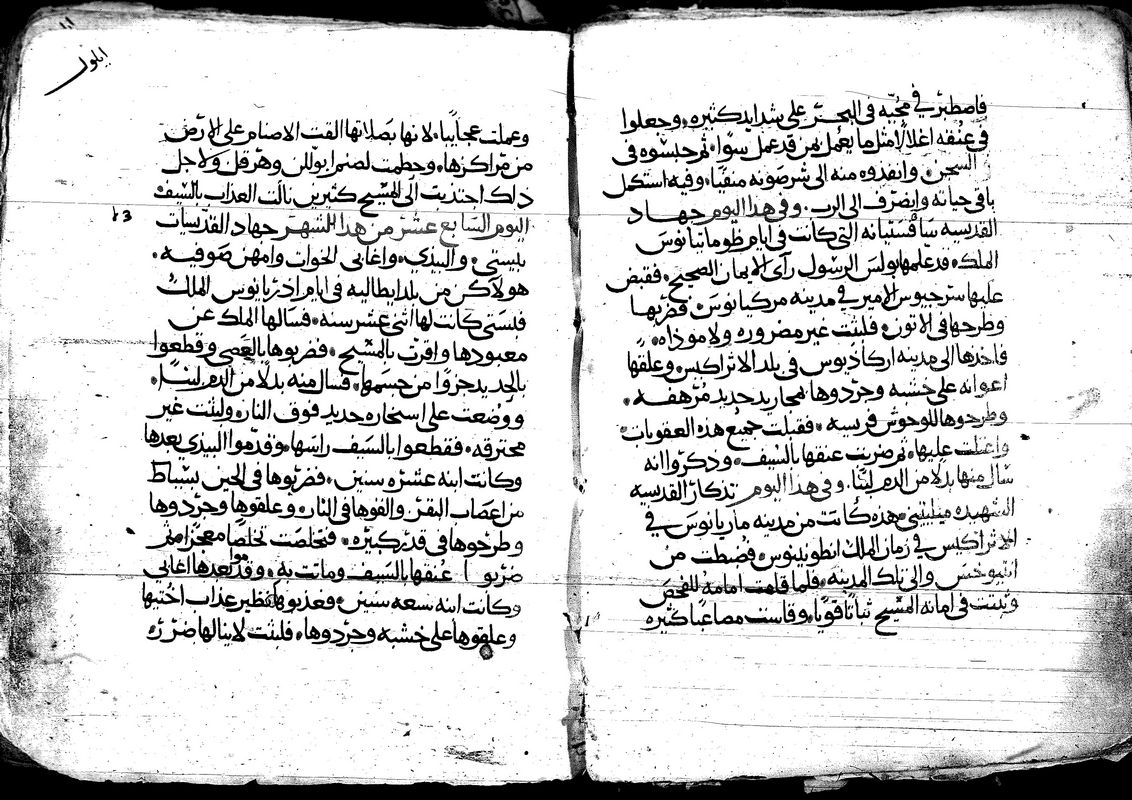 فاصطبر في محبه في البحر على شدايد كثيره وجعلوا
في عنقه اغلالا مثل ما يعمل بمن قد عمل سوا ثم حبسوه في
السجن وانفدوه منه الى شرصونه منفيا وفيه استكمل
باقي حياته وانصرف الى الرب وفي هدا اليوم جهاد
القديسه بتا فستيانه التي كانت في ايام ظوماتيانوس
الملك قد علمها بولس الرسول رآى الايمان الصحيح فقبض
عليها سرجيوس الامير في مدينه مركيانوس فضربها
وطرحها في الاتون فلبثت غير مضروره ولا موداه
فاخدها الى مدينه اركاديوس في بلد الاتراكس وعلقها
اعوانه على خشبه وجردوها بمجاريد حديد مرهفه
وطرحوها للوحوش فريسه فقبلت جميع هده العقوبات
واعتلت عليها ثم ضربت عنقها بالسيف ودكروا انه
سال منها بدلا من الدم لبنا وفي هدا اليوم تدكار القديسه
الشهيده ميليتيني هده كانت من مدينه ماريانوس في
الاتراكيس في زمان الملك انطونينوس فضبطت من
انتيوخس والى تلك المدينه فلما قامت امامه للفحص
وثبتت في امانه المسيح ثباتا قويا وقاست مصاعبا كثيره
ايلول
وعملت عجايبا لانها بصلاتها القت الاصنام على الارض
من مراكزها وحطمت لصنم ابوللن وهرقل ولاجل
داك اجتدبت الى المسيح كثيرين نالت العداب بالسيف
اليوم السابع عشر من هدا الشهر جهاد القديسات
بيستي والبيدي واغابي الخوات وامهن صوفيه
هولاكن من بلد ايطاليه في ايام ادريانوس الملك
فبستي كانت لها اثني عشر سنه فسالها الملك عن
معبودها واقرت بالمسيح فضربوها بالعصي وقطعوا
بالحديد جزوا من جسمها فسال منه بدلا من الدم لبنا
ووضعت على اسخاره حديد فوق النار ولبثت غير
محترقه فقطعوا بالسيف راسها وقدموا البيدي بعدها
وكانت ابنه عشره سنين فضربوها في الحين بسياط
من اعصاب البقر والقوها في النار وعلقوها وجردوها
وطرحوها في قدر كبيره فتخلصت تخلصا معجزا ثم
ضربوا عنقها بالسيف وماتت به وقدموا بعدها اغابي
وكانت ابنه سعه سنين فعدبوها نظير عداب اختها
وعلقوها على خشبه وجردوها فلبثت لاينالها ضرره